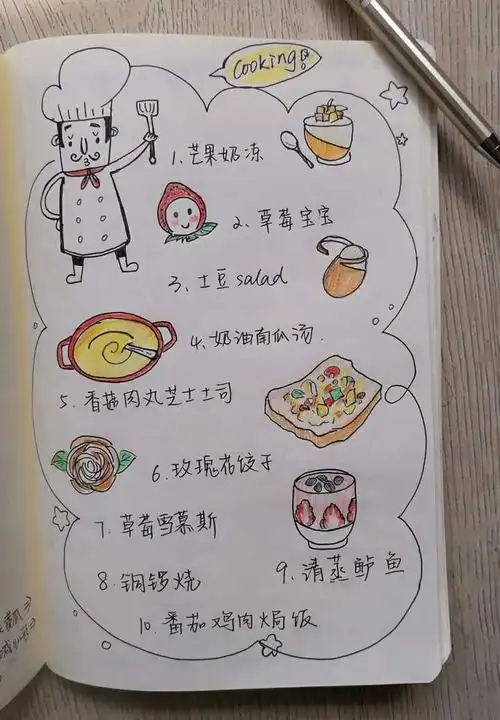 cooking!
1.芒果奶冻
2、草莓宝宝
3、土豆salad
4、奶油南瓜汤.
5、香菇肉丸芝士土司
6.玫瑰花饺子
7.草莓雪慕斯
8.铜锣烧
9.清蒸鲈鱼
10.番茄鸡肉焗饭